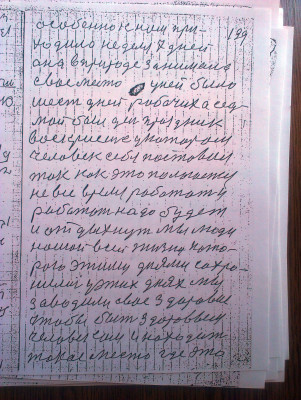 особенно к нам при-
199
ходило неделя 7 дней
она в природе занимала
свое место у ней было
шесть дней рабочих а сед-
мой был ден праздник
воскресение
человек себя поставил
так как это положено
не все время работать
работат надо будет
и отдыхнут мы люди
нашей всей жизни кото-
рого этими днями сохра-
нили в этих днях мы
заводили свое здоровье
чтобы быт здоровым
человеком и находит
такое место где эта